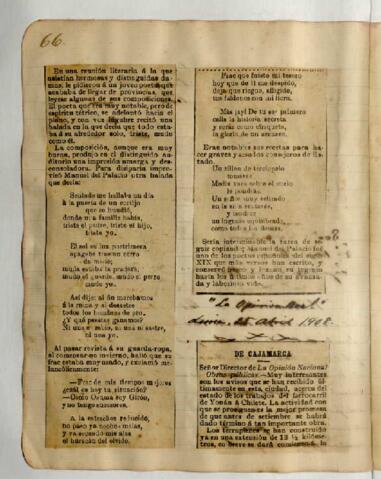 66.
En una reunión literaria á la que
asistían hermosas y distinguidas da-
mas, le pidieron á un joven poeta que
acababa de llegar de provincias, que
leyera algunas de sus composiciones.
El poeta que era muy notable, pero de
espíritu tétrico, se adelantó hacia el
piano, y con voz lúgubre recitó una
balada en la que decía que todo esta-
ba á su alrededor solo, triste, mudo
como él.
La composición, aunque era muy
buena, produjo en el distinguido au-
ditorio una impresión amarga y des-
consoladora. Para disiparla impro-
visó Manuel del Palacio otra balada
que decía:
Sentado me hallaba un día
á la puerta de un cortijo
que se hundió,
donde una familia había,
triste el padre, triste el hijo,
triste yo.
El sol en las postrimeras
apagóse tras un cerro
da mudo;
muda estaba la pradera,
mudo el guarda, mudo el perro
mudo yo.
Así dije: al fin marchamos
á la ruina y al desastre
todos los hombres de pro.
¿Y qué pesetas ganamos?
Ni una el sastre,
ni una yo.
Al pasar revista á su guarda-ropa,
al comenzar un invierno, halló que su
frac estaba muy usado, y exclamó me-
lancólicamente:
—Frac de mis tiempos mejores
¿cuál es hoy tu situación?
—Como Osuna soy Girón,
y no tengo sucesores.
A la estrechez reducido,
no paso ya noches malas,
y va segando mis alas
el huracán del olvido.
Frac que fuiste mi tesoro
hoy que de ti me despido,
deja que riegue, afligido,
tus faldones con mi lloro.
Mas ¡ay! De tu ser primero
calla la historia secreta
y serás como chaqueta,
la gloria de un
Eran notables sus recetas para ha-
cer graves y sesudos consejeros de Es-
tado.
Un sillón de terciopelo
tomarás
Madia vara sobre el suelo
le pondrás.
Un señor muy estirado
en la
y tendrás
un ingenio
como todos los demás.
Sería interminable la tarea de se-
guir copiando á Manuel del Palacio fué
uno de los poetas españoles del siglo
XIX que más versos han escrito, y
conservó fresco y lozano, su ingenio
hasta los últimos años de su avanza-
da y laboriosa vida.
"La Opinion Nacl."
Lima, abril 1908.
DE CAJAMARCA
Señor Director de La Opinión Nacional
Obras públicas.—Muy interesantes
son los avisos que se han recibido úl-
timamente en esta ciudad, acerca del
estado de los trabajos del ferrocarril
de Yonán á Chilete. La actividad con
que se prosiguen es la mejor promesa
de que antes de setiembre se habrá
dado término á tan importante obra.
Los terraplenes se han construido
ya en una extensión de 13 ½ kilóme-
tros, en breve se dará comienzo á la